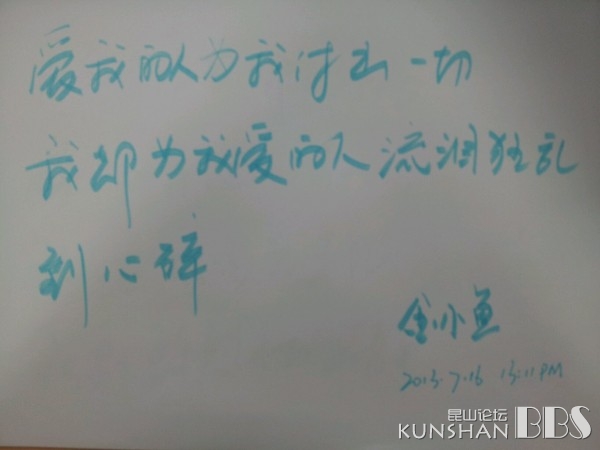 爱我的人为我付出一切
我却为我爱的人流泪狂乱
到心碎
金小鱼
2013.7.16 13:11PM
昆山论坛
KUNSHAN BBS